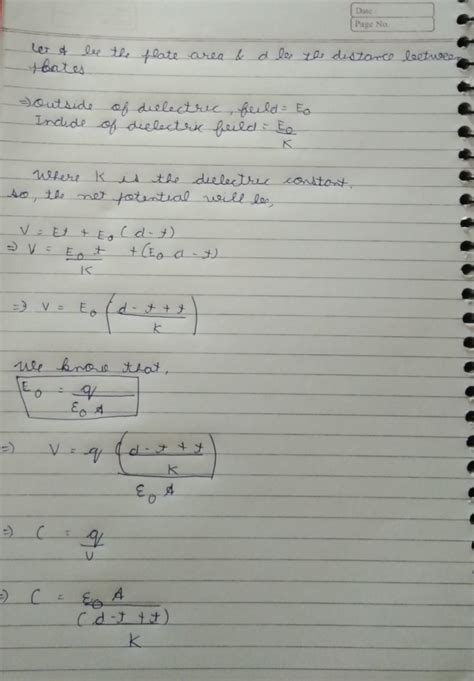 Date
Page No.
Let A be the plate area & d be the distance between
plates
⇒ outside of dielectric, feild = E₀
Indide of dielectric feild = E₀/K
Where K is the dielectric constant.
so, the net potential will be,
V = Et + E₀ (d-t)
⇒ V = E₀ t/K + (E₀ d - t)
⇒ V = E₀ (d - t + t/K)
We know that,
E₀ = q/ε₀ A
⇒ V = q (d - t + t/K)/ε₀ A
⇒ C = q/V
⇒ C = ε₀ A/(d - t + t)/K